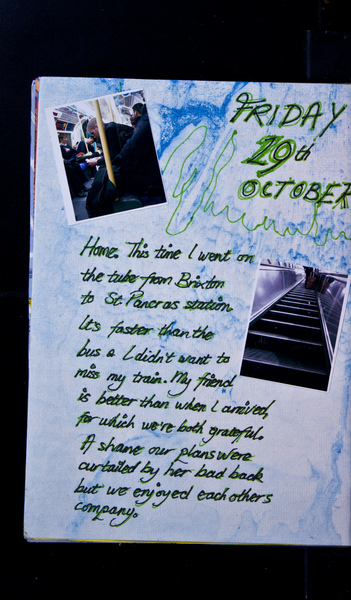 FRIDAY
29th
OCTOBER
Home. This time I went on
the tube from Brixton
to St Pancras station.
Its faster than the
bus & I didn't want to
miss my train. My friend
is better than when I arrived,
for which we're both grateful.
A shame our plans were
curtailed by her bad back
but we enjoyed each others
company.